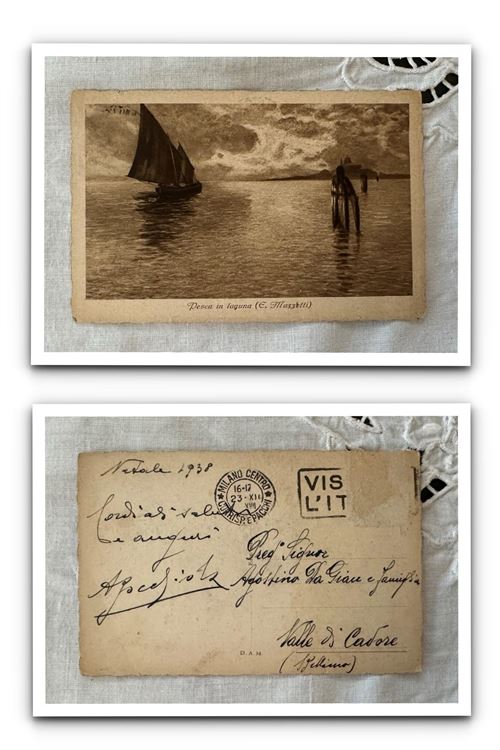 Pesca in laguna (E. Mazzetti)
Natale 1938
MILANO CENTRO
16-17
23·XII
XVII
VIS
L'IT
Cordiali saluti
e auguri
Preg° Signor
Agostino Da Giau e Famiglia
Valle di Cadore
(Belluno)
D.A.M.